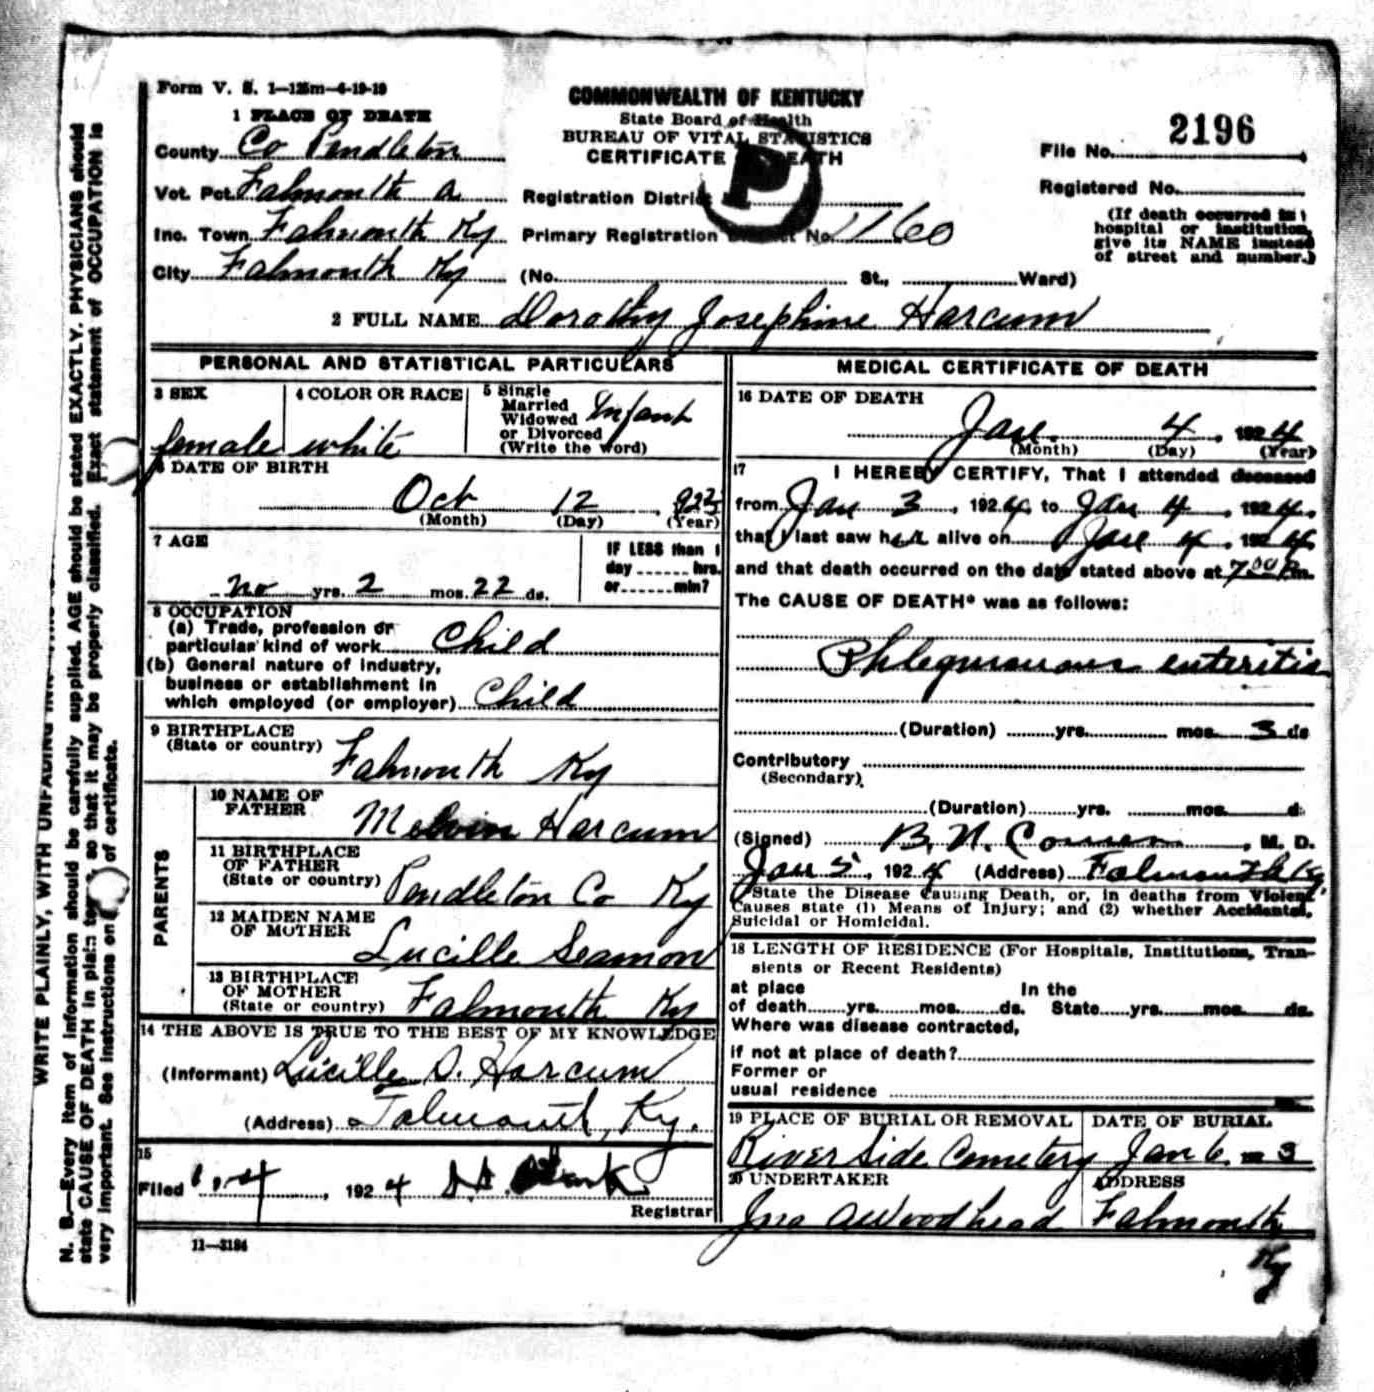 Form V. S. 1—125m—4-19-19
COMMONWEALTH OF KENTUCKY
State Board of Health
BUREAU OF VITAL STATISTICS
CERTIFICATE OF DEATH
P
2196
File No.
Registered No.
(If death occurred in a
hospital or institution,
give its NAME instead
of street and number.)
1 PLACE OF DEATH
County Co Pendleton
Vot. Pct. Falmouth a
Registration District
Inc. Town Falmouth Ky
Primary Registration District No. 1160
City Falmouth Ky (No. St., Ward)
2 FULL NAME Dorothy Josephine Harcum
PERSONAL AND STATISTICAL PARTICULARS
3 SEX
female
4 COLOR OR RACE
white
5 Single
Married
Widowed
or Divorced
(Write the word)
Infant
6 DATE OF BIRTH
Oct 12, 1923
(Month) (Day) (Year)
7 AGE
no yrs. 2 mos. 22 ds.
IF LESS than 1
day hrs.
or min?
8 OCCUPATION
(a) Trade, profession or
particular kind of work Child
(b) General nature of industry,
business or establishment in
which employed (or employer) Child
9 BIRTHPLACE
(State or country) Falmouth Ky
PARENTS
10 NAME OF
FATHER Melvin Harcum
11 BIRTHPLACE
OF FATHER
(State or country) Pendleton Co Ky
12 MAIDEN NAME
OF MOTHER Lucille Seamon
13 BIRTHPLACE
OF MOTHER
(State or country) Falmouth Ky
14 THE ABOVE IS TRUE TO THE BEST OF MY KNOWLEDGE
(Informant) Lucille S. Harcum
(Address) Falmouth, Ky.
15
Filed 1-4, 1924
Registrar
11—3184
MEDICAL CERTIFICATE OF DEATH
16 DATE OF DEATH
Jan. 4, 1924
(Month) (Day) (Year)
17 I HEREBY CERTIFY, That I attended deceased
from Jan 3, 1924, to Jan 4, 1924,
that I last saw her alive on Jan 4, 1924
and that death occurred on the date stated above at 7 00 P.m.
The CAUSE OF DEATH* was as follows:
Phlegmonous enteritis
(Duration) yrs. mos. 3 ds
Contributory
(Secondary)
(Duration) yrs. mos. d.
(Signed) B. N. , M. D.
Jan 5, 1924 (Address) Falmouth Ky.
*State the Disease Causing Death, or, in deaths from Violent
Causes state (1) Means of Injury; and (2) whether Accidental,
Suicidal or Homicidal.
18 LENGTH OF RESIDENCE (For Hospitals, Institutions, Tran-
sients or Recent Residents)
at place In the
of death yrs. mos. ds. State yrs. mos. ds.
Where was disease contracted,
if not at place of death?
Former or
usual residence
19 PLACE OF BURIAL OR REMOVAL
River Side Cemetery
DATE OF BURIAL
Jan 6 3
20 UNDERTAKER
Jno A Woodhead
ADDRESS
Falmouth
Ky
WRITE PLAINLY, WITH UNFADING INK
N. B.—Every item of information should be carefully supplied. AGE should be stated EXACTLY. PHYSICIANS should
state CAUSE OF DEATH in plain terms, so that it may be properly classified. Exact statement of OCCUPATION is
very important. See instructions on of certificate.